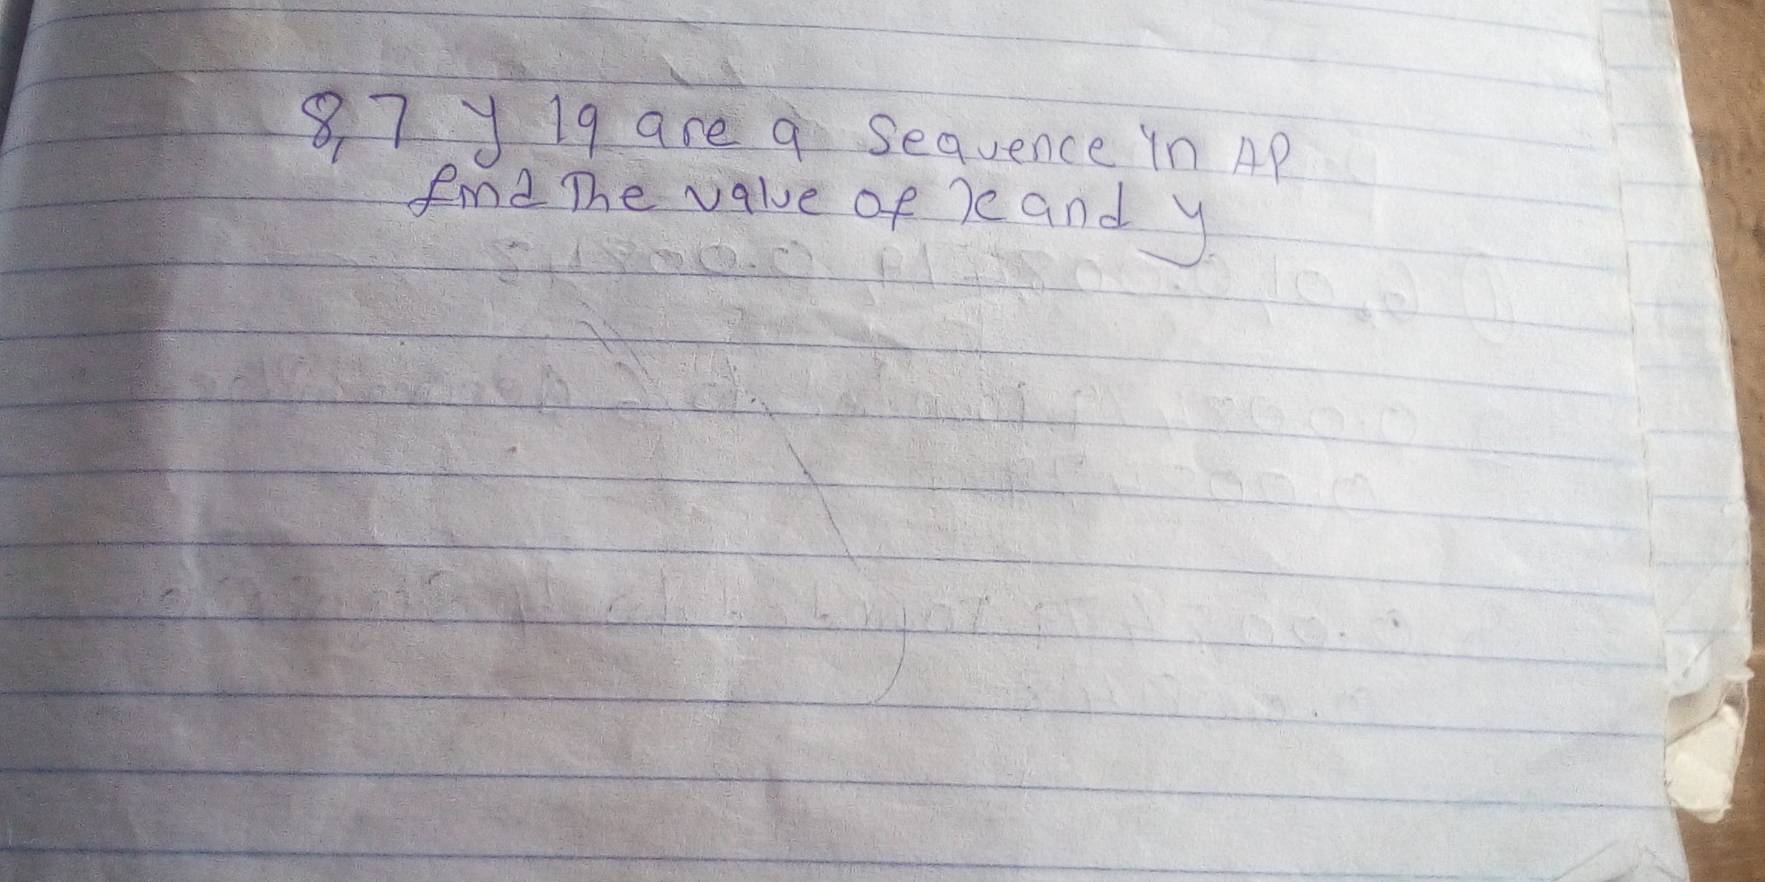 8,7 y 19 are a sequence in AP
find The value of x and y